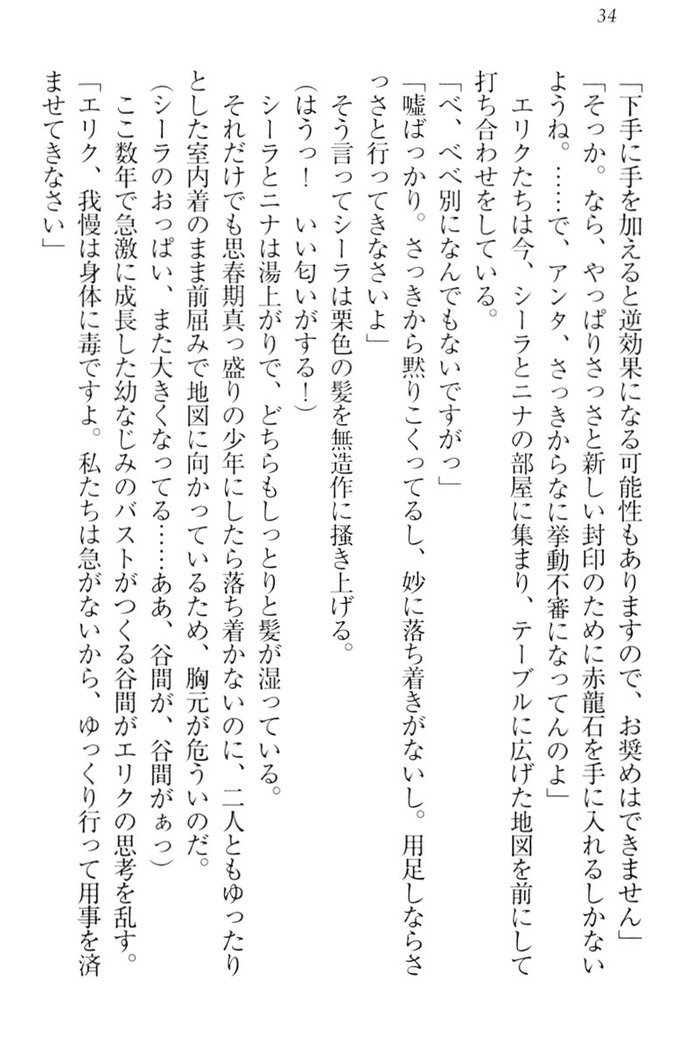 34
「下手に手を加えると逆効果になる可能性もありますので、お奨めはできません」
「そっか。なら、やっぱりさっさと新しい封印のために赤龍石を手に入れるしかない
ようね。……で、アンタ、さっきからなに挙動不審になってんのよ」
　エリクたちは今、シーラとニナの部屋に集まり、テーブルに広げた地図を前にして
打ち合わせをしている。
「べ、べべ別になんでもないですがっ」
「嘘ばっかり。さっきから黙りこくってるし、妙に落ち着きがないし。用足しならさ
っさと行ってきなさいよ」
　そう言ってシーラは栗色の髪を無造作に掻き上げる。
（はうっ！　いい匂いがする！）
　シーラとニナは湯上がりで、どちらもしっとりと髪が湿っている。
　それだけでも思春期真っ盛りの少年にしたら落ち着かないのに、二人ともゆったり
とした室内着のまま前屈みで地図に向かっているため、胸元が危ういのだ。
（シーラのおっぱい、また大きくなってる……ああ、谷間が、谷間がぁっ）
　ここ数年で急激に成長した幼なじみのバストがつくる谷間がエリクの思考を乱す。
「エリク、我慢は身体に毒ですよ。私たちは急がないから、ゆっくり行って用事を済
ませてきなさい」